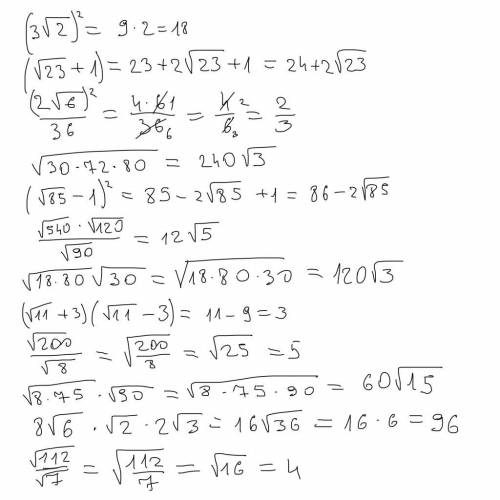 (3√2)² = 9·2=18
(√23 + 1) = 23+2√23+1 = 24+2√23
(2√6)²/36 = 4·6 1/36 6 = 4 2/6 3 = 2/3
√30·72·80 = 240√3
(√85 − 1)² = 85−2√85 +1 = 86−2√85
√540 · √120/√90 = 12√5
√18·80 √30 = √18·80·30 = 120√3
(√11 +3)(√11 −3) = 11−9=3
√200/√8 = √200/8 = √25 = 5
√8·75 · √90 = √8·75·90 = 60√15
8√6 · √2 · 2√3 = 16√36 = 16·6 = 96
√112/√7 = √112/7 = √16 = 4